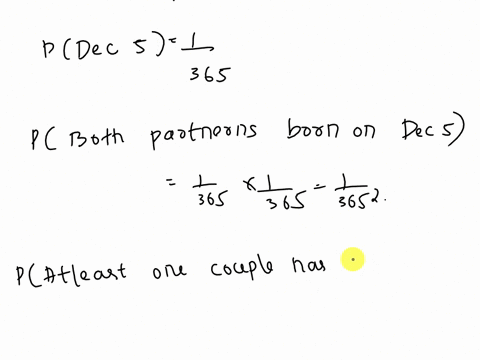 P(Dec 5) = 1/365
P( Both partnerns born on Dec 5)
= 1/365 × 1/365 = 1/365².
P(Atleast one couple has